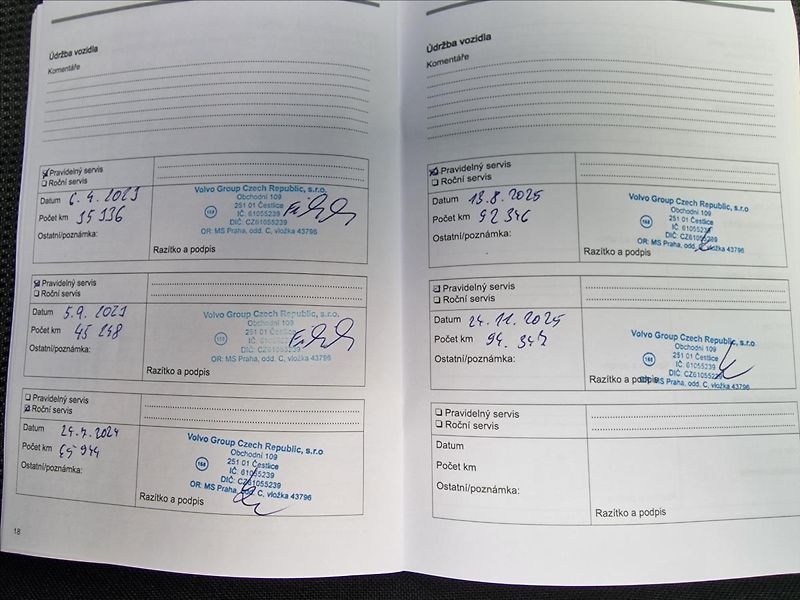 Údržba vozidla
Komentáře
Pravidelný servis
Roční servis
Datum 6. 4. 2023
Počet km 35 136
Ostatní/poznámka:
Volvo Group Czech Republic, s.r.o.
Obchodní 109
251 01 Čestlice
IČ: 61055239
DIČ: CZ61055239
OR: MS Praha, odd. C, vložka 43796
168
Razítko a podpis
Pravidelný servis
Roční servis
Datum 5. 9. 2023
Počet km 45 248
Ostatní/poznámka:
Volvo Group Czech Republic, s.r.o.
Obchodní 109
251 01 Čestlice
IČ: 61055239
DIČ: CZ61055239
OR: MS Praha, odd. C, vložka 43796
Razítko a podpis
Pravidelný servis
Roční servis
Datum 24. 7. 2024
Počet km 65 944
Ostatní/poznámka:
Volvo Group Czech Republic, s.r.o
Obchodní 109
251 01 Čestlice
IČ: 61055239
DIČ: CZ61055239
OR: MS Praha, odd. C, vložka 43796
168
Razítko a podpis
18
Údržba vozidla
Komentáře
Pravidelný servis
Roční servis
Datum 13. 8. 2025
Počet km 92 346
Ostatní/poznámka:
Volvo Group Czech Republic, s.r.o
Obchodní 109
251 01 Čestlice
IČ: 61055239
DIČ: CZ61055239
OR: MS Praha, odd. C, vložka 43796
168
Razítko a podpis
Pravidelný servis
Roční servis
Datum 24. 11. 2025
Počet km 94. 347
Ostatní/poznámka:
Volvo Group Czech Republic, s.r.o
Obchodní 109
251 01 Čestlice
IČ: 61055239
DIČ: CZ61055239
OR: MS Praha, odd. C, vložka 43796
168
Razítko a podpis
Pravidelný servis
Roční servis
Datum
Počet km
Ostatní/poznámka:
Razítko a podpis